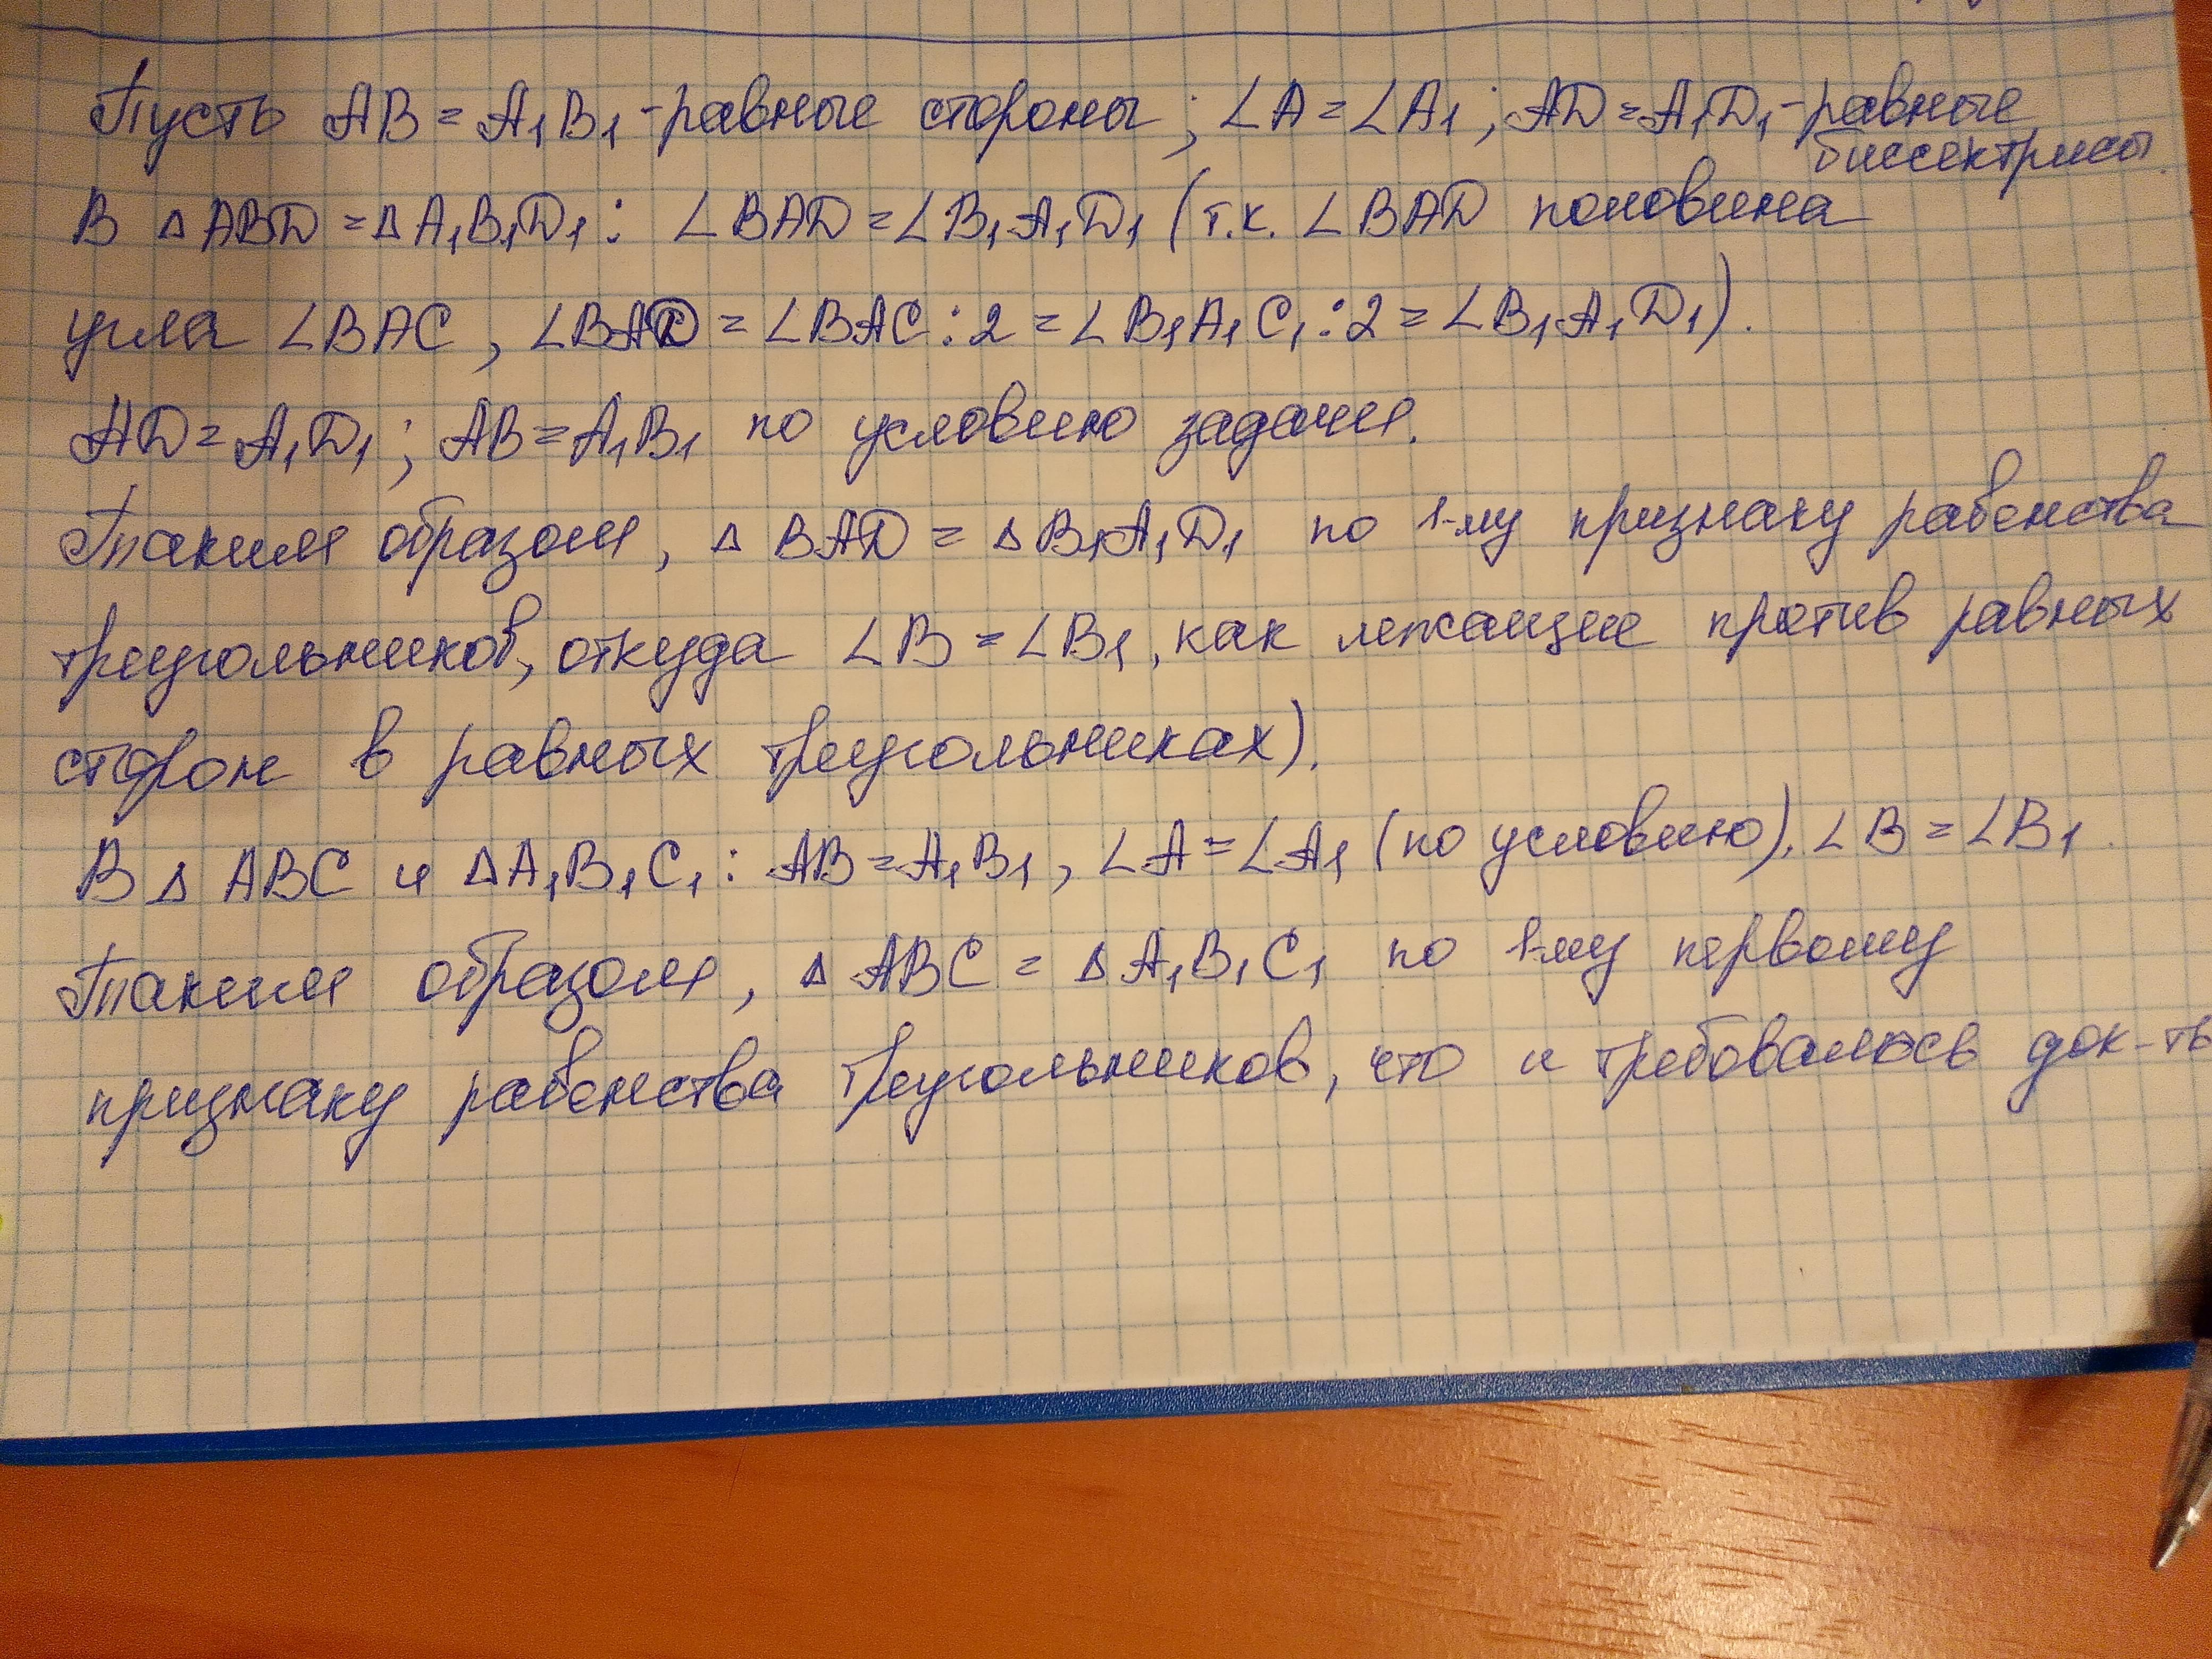 Пусть AB = A₁B₁ - равные стороны; ∠A = ∠A₁; AD = A₁D₁ - равные
биссектрисы.
В △ABD = △A₁B₁D₁: ∠BAD = ∠B₁A₁D₁ (т.к. ∠BAD половина
угла ∠BAC, ∠BAD = ∠BAC : 2 = ∠B₁A₁C₁ : 2 = ∠B₁A₁D₁).
AD = A₁D₁; AB = A₁B₁ по условию задачи.
Таким образом, △BAD = △B₁A₁D₁ по 1-му признаку равенства
треугольников, откуда ∠B = ∠B₁, как лежащие против равных
сторон в равных треугольниках).
В △ABC и △A₁B₁C₁: AB = A₁B₁, ∠A = ∠A₁ (по условию), ∠B = ∠B₁.
Таким образом, △ABC = △A₁B₁C₁ по 1-му первому
признаку равенства треугольников, что и требовалось док-ть